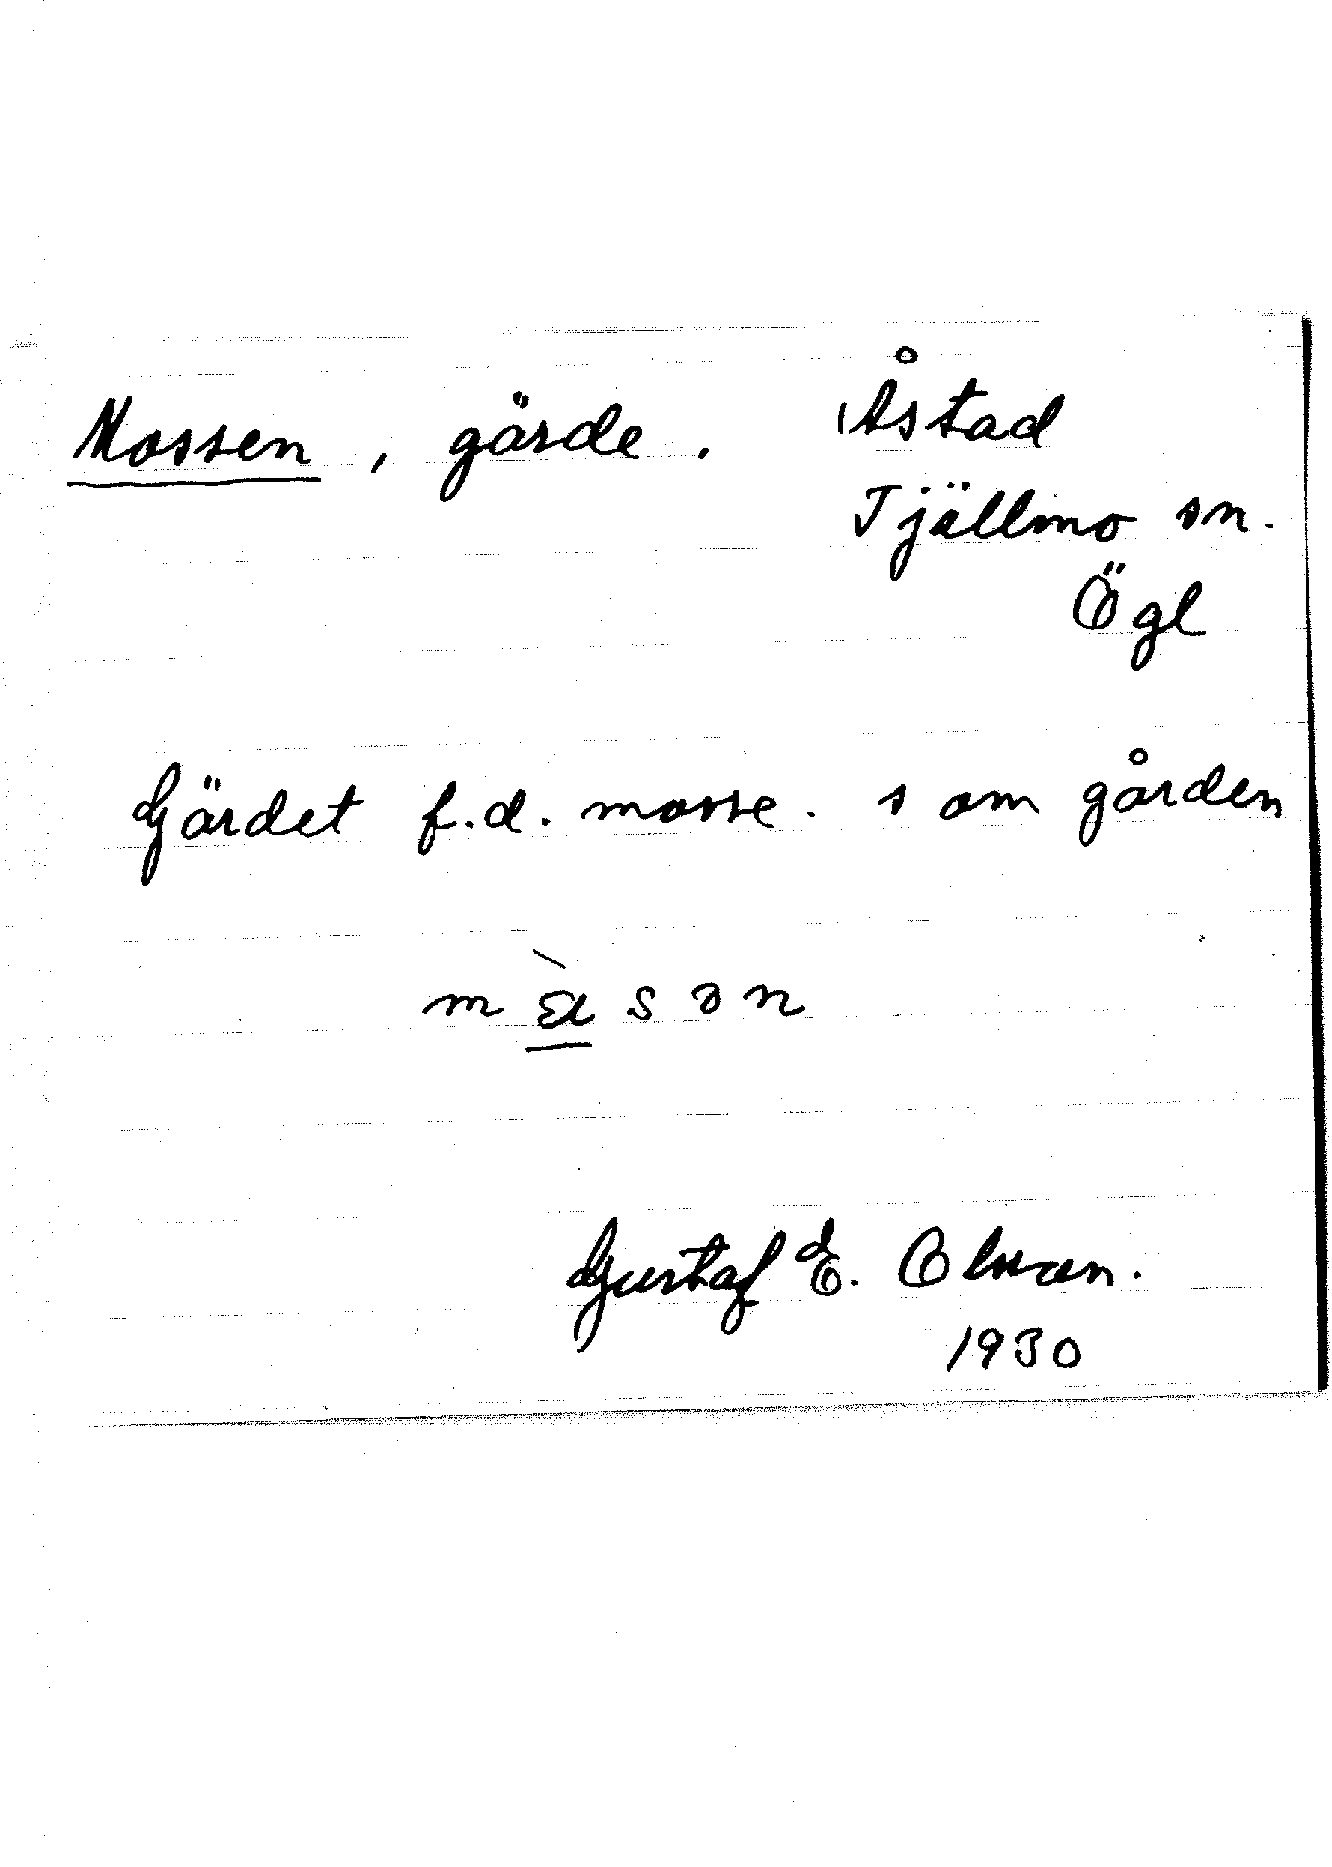 Mossen, gärde. Åstad
Tjällmo sn.
Ögl
Gärdet f.d. mosse. s om gården
Gustaf E. Olsson.
1930